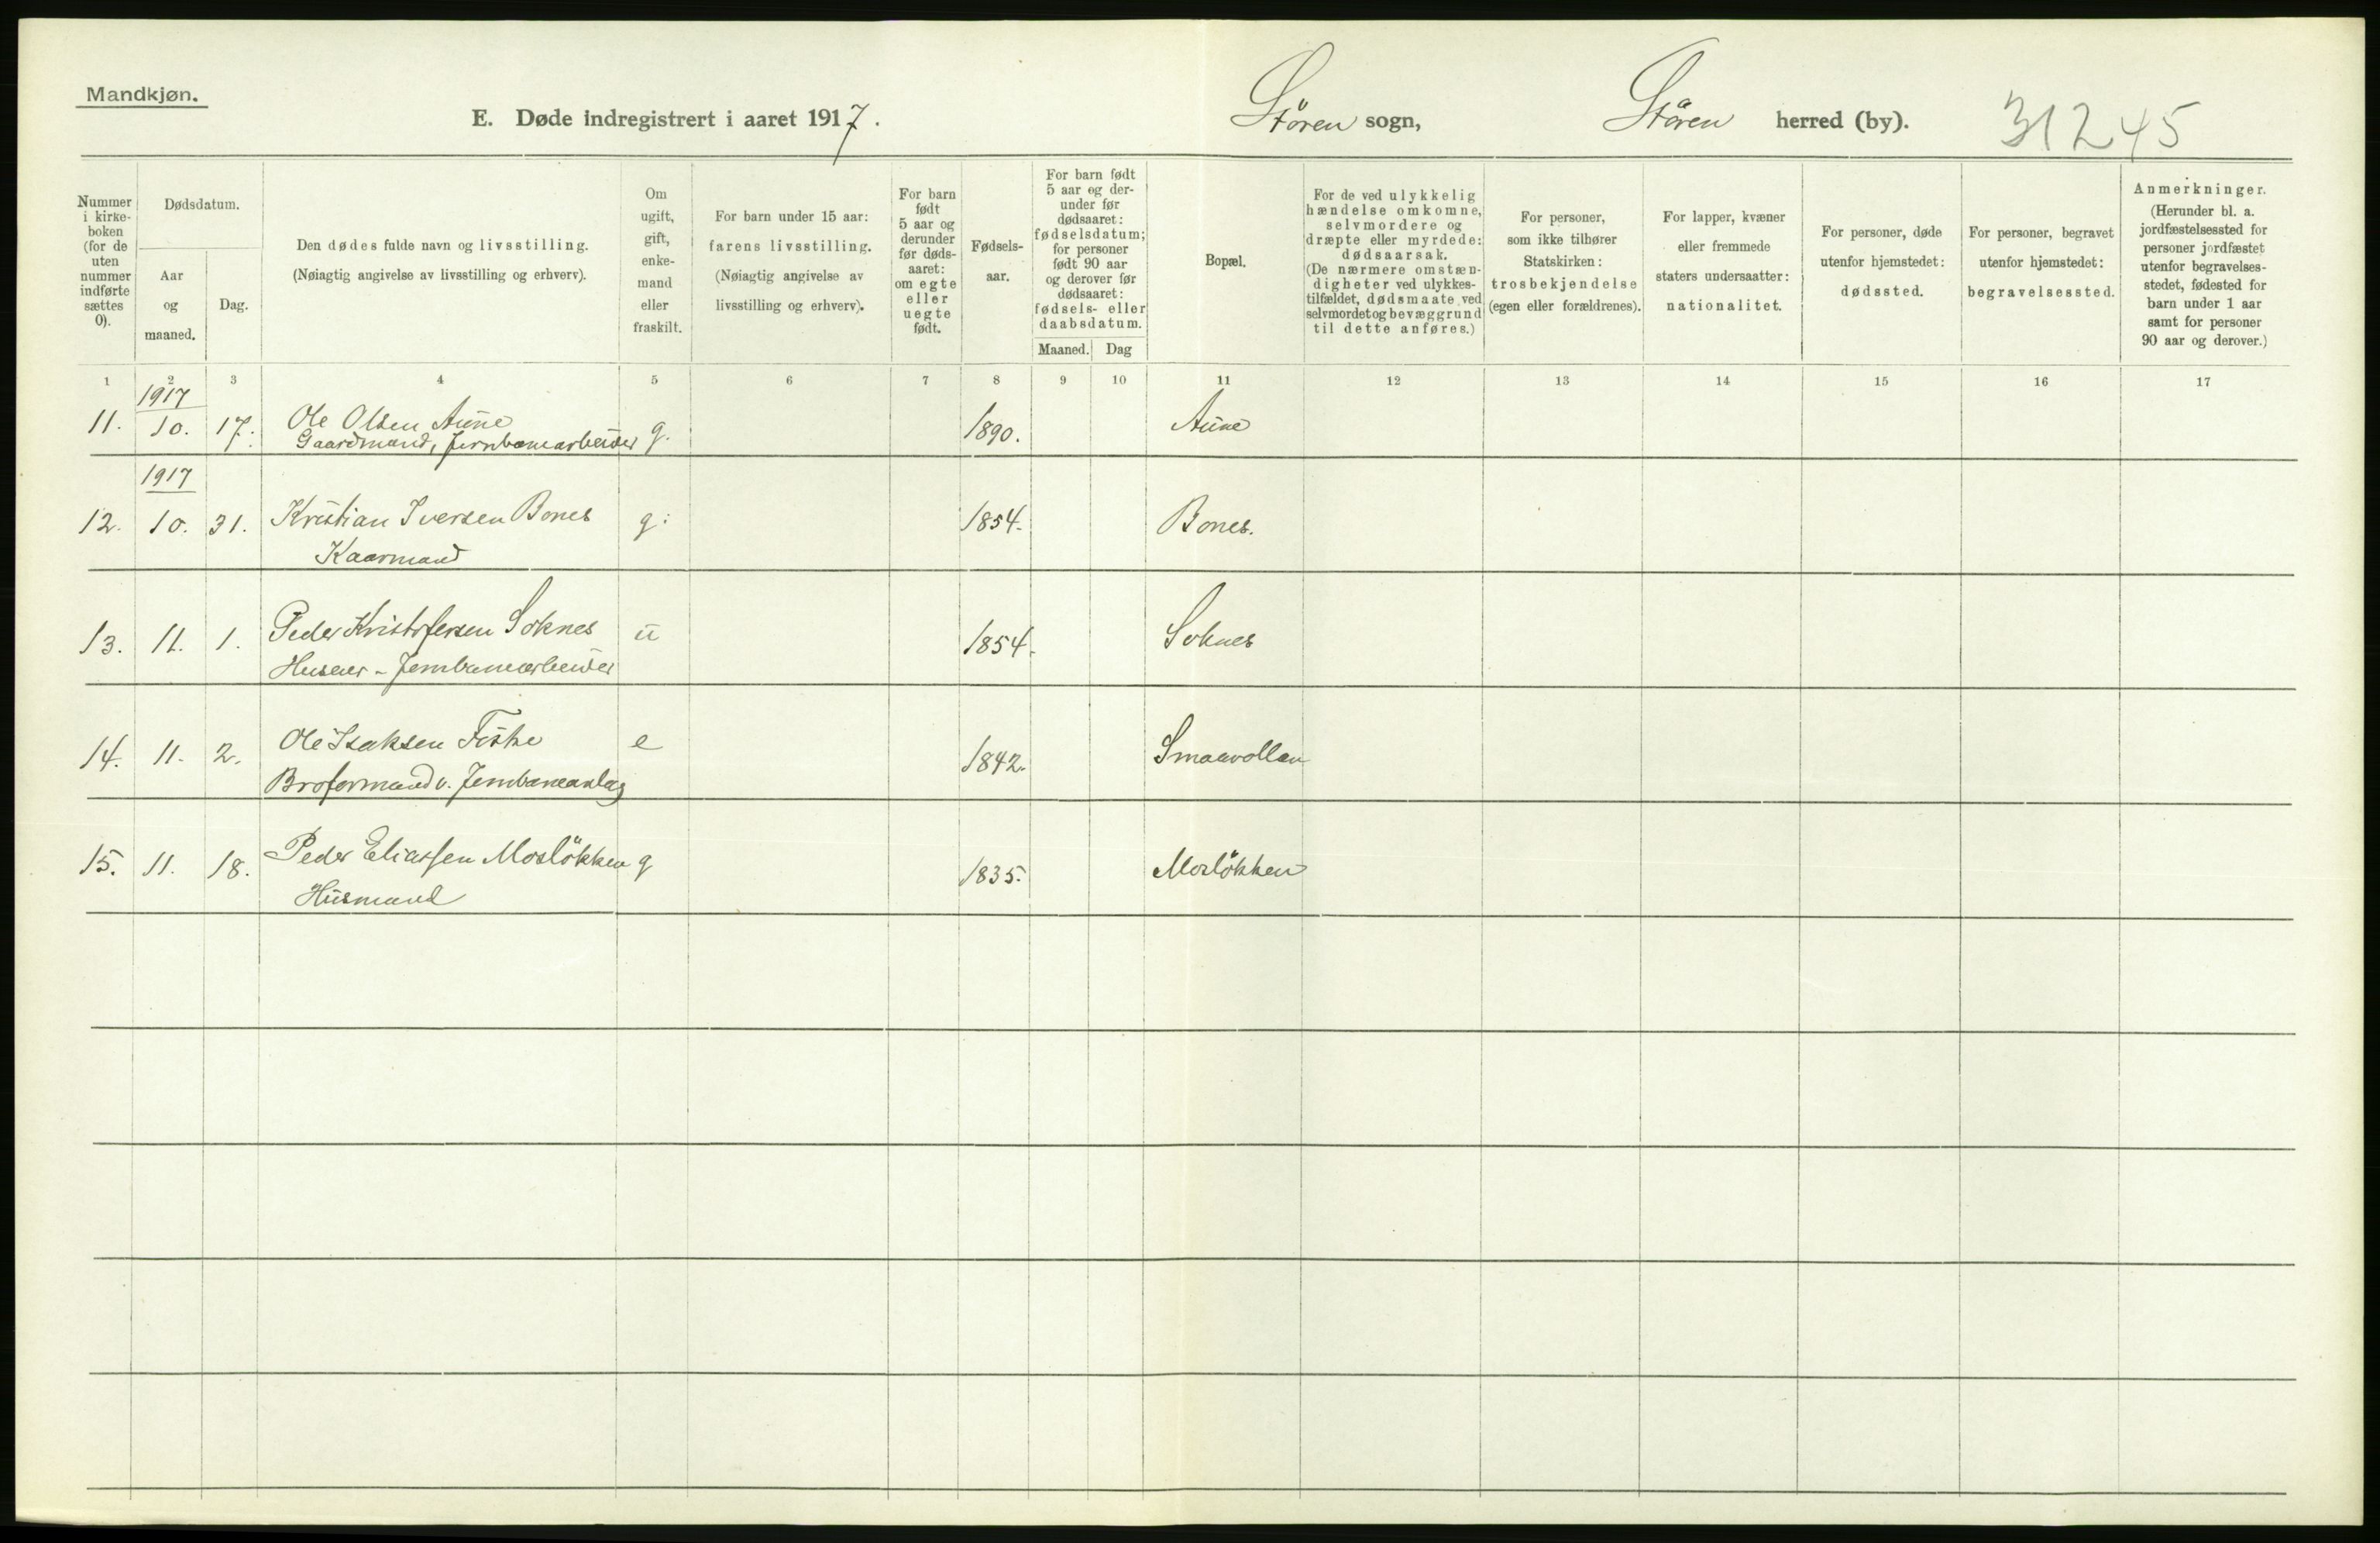 Mandkjøn.
E. Døde indregistrert i aaret 1917.
Stören sogn,
Stören herred (by).
31245
Nummer i kirke-boken (for de uten nummer indførte sættes 0).
Dødsdatum.
Aar og maaned.
Dag.
Den dødes fulde navn og livsstilling.
(Nøiagtig angivelse av livsstilling og erhverv).
Om ugift, gift, enke-mand eller fraskilt.
For barn under 15 aar:
farens livsstilling.
(Nøiagtig angivelse av
livsstilling og erhverv).
For barn født 5 aar og derunder før døds-aaret: om egte eller uegte født.
Fødsels-aar.
For barn født 5 aar og der-under før dødsaaret: fødselsdatum; for personer født 90 aar og derover før dødsaaret: fødsels- eller daabsdatum.
Maaned. Dag
Bopæl.
For de ved ulykkelig hændelse omkomne, selvmordere og dræpte eller myrdede: dødsaarsak. (De nærmere omstæn-digheter ved ulykkes-tilfældet, dødsmaate ved selvmordet og bevæggrund til dette anføres.)
For personer, som ikke tilhører Statskirken: trosbekjendelse (egen eller forældrenes).
For lapper, kvæner eller fremmede staters undersaatter: nationalitet.
For personer, døde utenfor hjemstedet: dødssted.
For personer, begravet utenfor hjemstedet: begravelsessted.
Anmerkninger.
(Herunder bl. a. jordfæstelsessted for personer jordfæstet utenfor begravelses-stedet, fødested for barn under 1 aar samt for personer 90 aar og derover.)
1 2 3 4 5 6 7 8 9 10 11 12 13 14 15 16 17
1917
11. 10. 17. Ole Olsen Aune g. 1890. Aune
Gaardmand, Jernbanearbeider
1917
12. 10. 31. Kristian Iversen Bones g. 1854. Bones.
Kaarmand
13. 11. 1. Peder Kristofersen Soknes u 1854. Soknes
Huseier - Jernbanearbeider
14. 11. 2. Ole Isaksen e 1842. Smaavollan
Broformand v. Jernbaneanlæg
15. 11. 18. Peder Eliassen Moslökken g 1835. Moslökken
Husmand